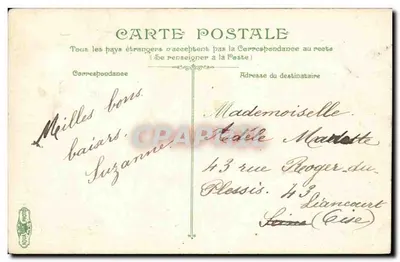 CARTE POSTALE
Tous les pays étrangers n'acceptent pas la Correspondance au recto
(Se renseigner à la Poste)
Correspondance
Adresse du destinataire
Milles bons
baisers.
Suzanne.
Mademoiselle
Adèle
43 rue Roger-du-
Plessis. 43
Liancourt
(Oise)